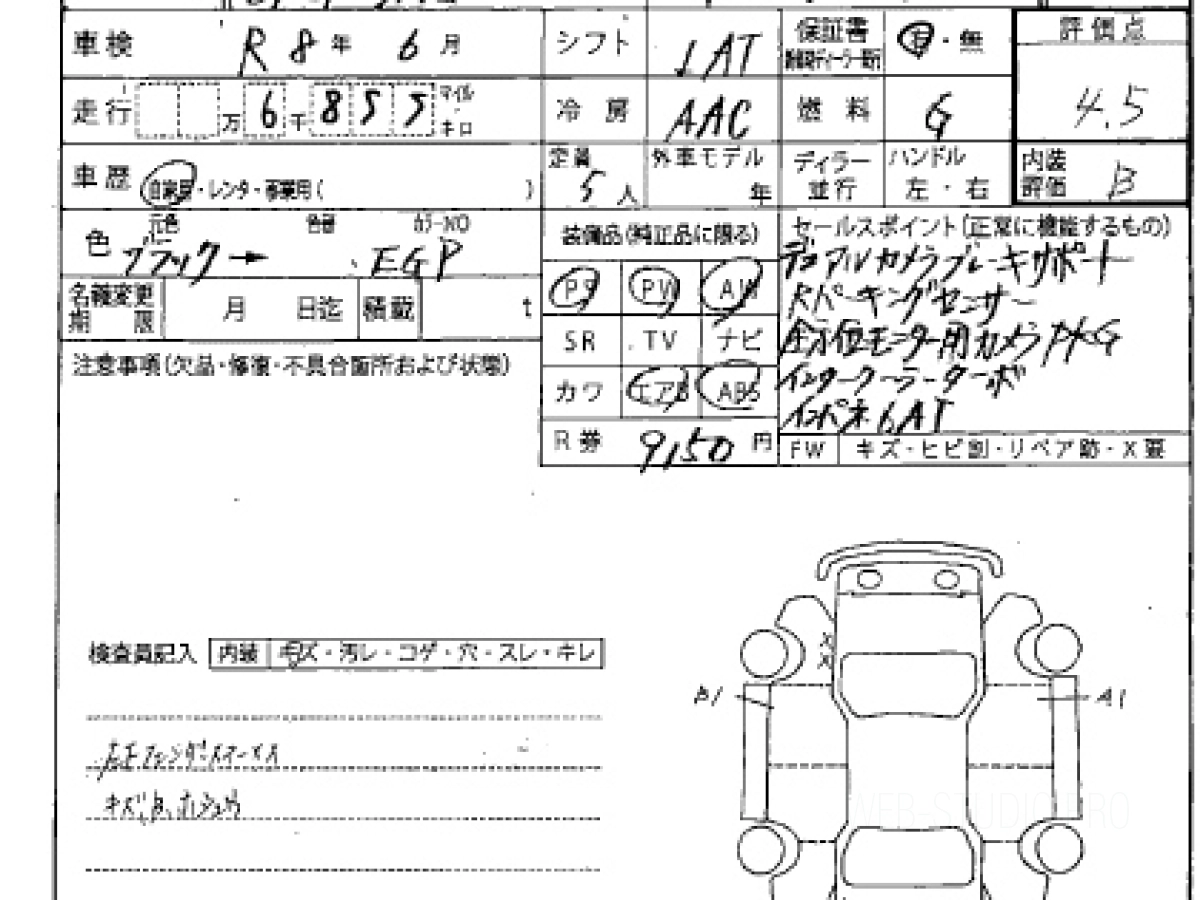 車検 R 8年 6月 シフト 6AT 保証書 有・無 評価点
走行 万 6千 855 マイル・キロ 冷房 AAC 燃料 G 4.5
車歴 自家用・レンタ・事業用( ) 定員 5人 外車モデル 年 ディラー並行 ハンドル 左・右 内装評価 B
色 元色 ブラック→ 色替 カラーNO EGP
名義変更期限 月 日迄 積載 t
装備品(純正品に限る)
PS PW AW
SR TV ナビ
カワ エアB ABS
R券 9,150円
セールスポイント(正常に機能するもの)
デュアルカメラブレーキサポート
パーキングセンサー
全方位モニター用カメラPKG
インタークーラーターボ
インパネ6AT
FW キズ・ヒビ割・リペア跡・X要
注意事項(欠品・修復・不具合箇所および状態)
検査員記入 内装 キズ・汚レ・コゲ・穴・スレ・キレ
B1 A1
X
X
WEB-STUDIO.PRO